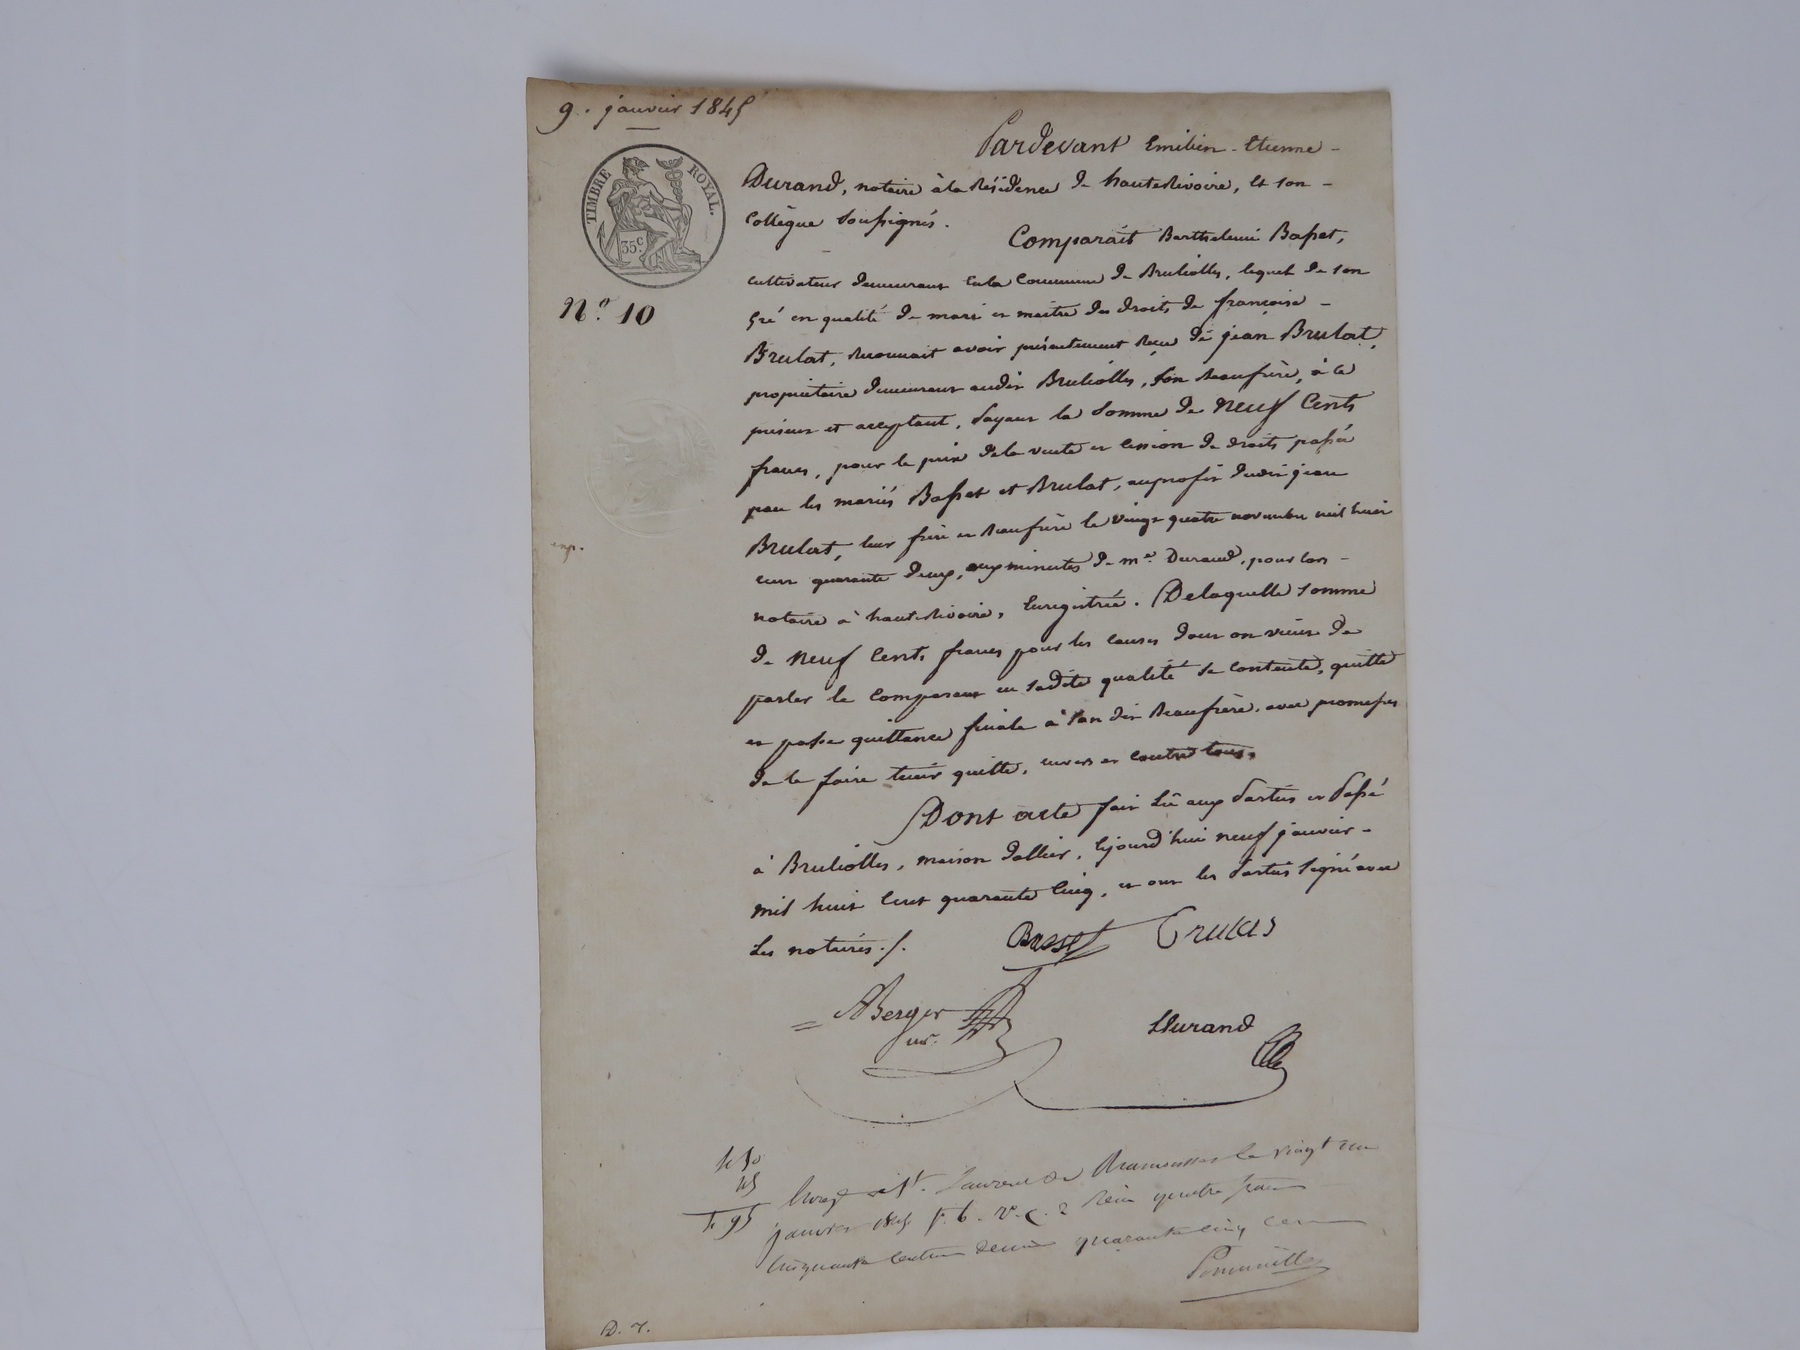 9. janvier 1845
TIMBRE ROYAL.
35c.
N.o 10
Pardevant Emilien - Etienne -
Durand, notaire à la Résidence de hauterivoire, et son -
Collègue soussignés.
Comparait Barthelemi Basset,
cultivateur demeurant en la Commune de Brullioles, lequel de son
gré en qualité de mari et maitre des droits de françoise -
Brulat, Reconnait avoir présentement Reçu de jean Brulat,
propriétaire demeurant audit Brullioles, son Beaufrère, à ce
présent et acceptant, payant la somme de neuf Cents
francs, pour le prix de la vente et cession de droits passée
par les mariés Basset et Brulat, au profit dudit jean
Brulat, leur frère et Beaufrère le vingt quatre novembre mil huit
cent quarante deux, aux minutes de me. Durand, pour lors -
enp.
notaire à hauterivoire, Enregistrée. De laquelle somme
de neuf Cents francs pour les causes dont on vient de
parler le comparant en sadite qualité se contente, quitte
et passe quittance finale à son dit Beaufrère, avec promesses
de le faire tenir quitte, envers et contre tous.
Dont acte fait Lû aux Parties et Passé
à Brullioles, maison dallier, Cejourd'hui neuf janvier -
mil huit Cent quarante Cinq, et ont les Parties signé avec
Les notaires ./.
Basset Brulas
ABerger
nre.
Durand
4 50
45
4 95
Enregé à St. Laurent de Chamousset le vingt un
janvier 1845 fo. 6. vo. c. 2 Reçu quatre francs
Cinquante Centimes décime quarante cinq cent
D. 7.